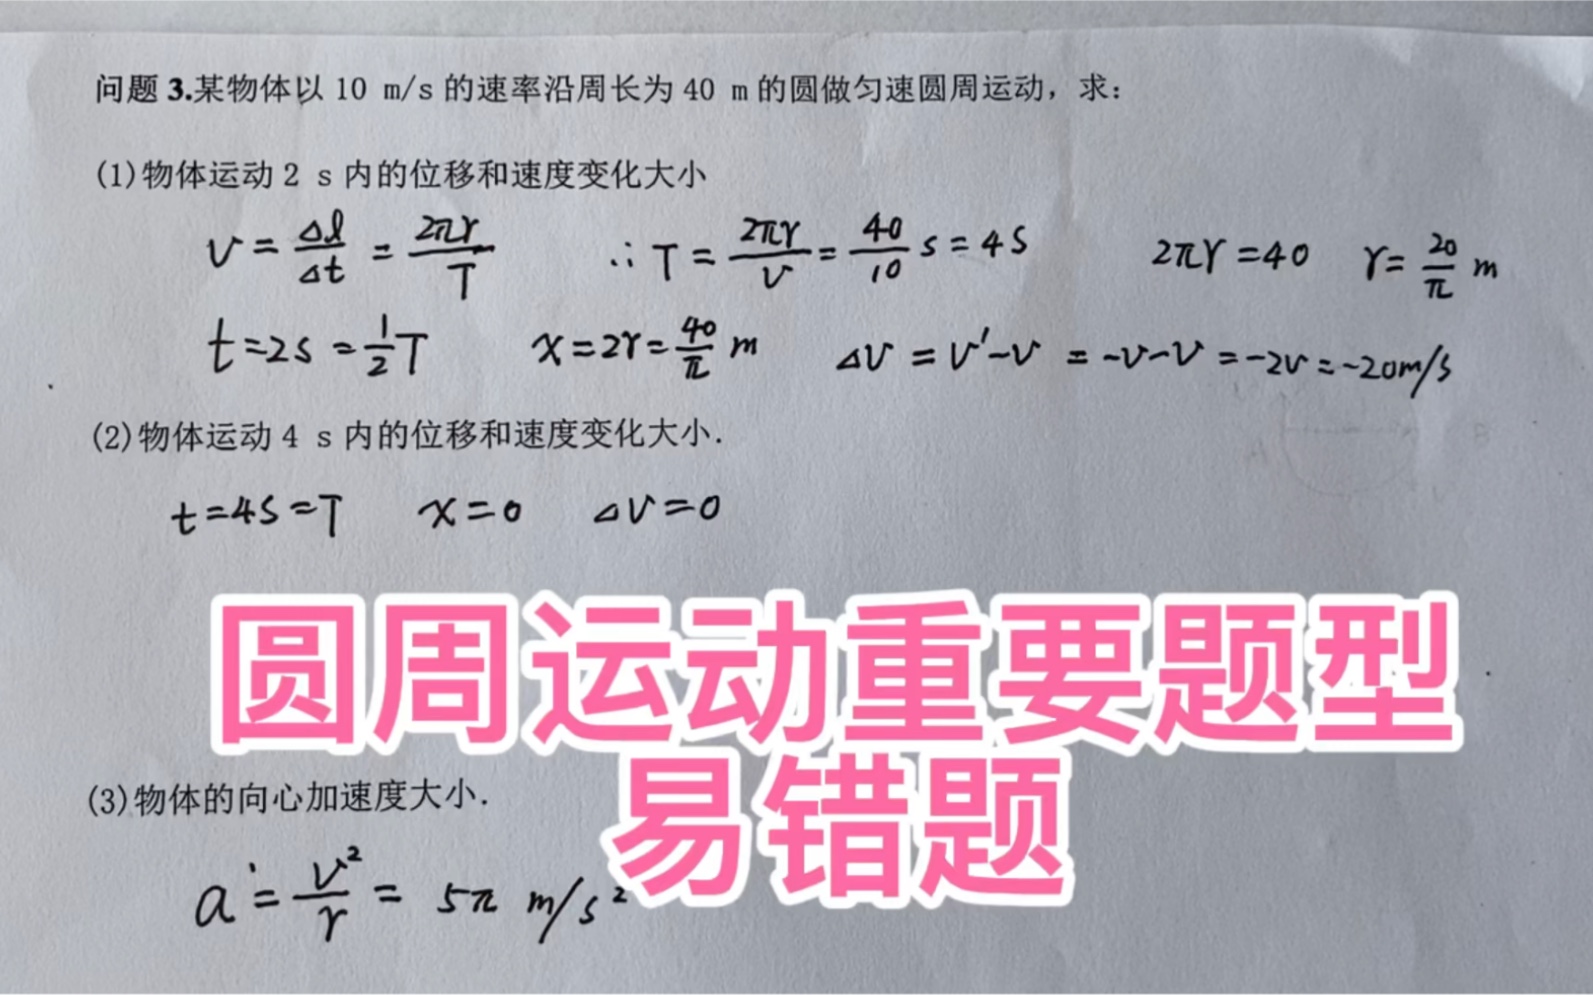 问题 3.某物体以 10 m/s 的速率沿周长为 40 m 的圆做匀速圆周运动，求：
(1)物体运动 2 s 内的位移和速度变化大小
v = Δl/Δt = 2πr/T ∴ T = 2πr/v = 40/10 s = 4s 2πr = 40 r = 20/π m
t = 2s = 1/2 T x = 2r = 40/π m Δv = v' - v = -v - v = -2v = -20m/s
(2)物体运动 4 s 内的位移和速度变化大小.
t = 4s = T x = 0 Δv = 0
圆周运动重要题型
易错题
(3)物体的向心加速度大小.
a = v²/r = 5π m/s²